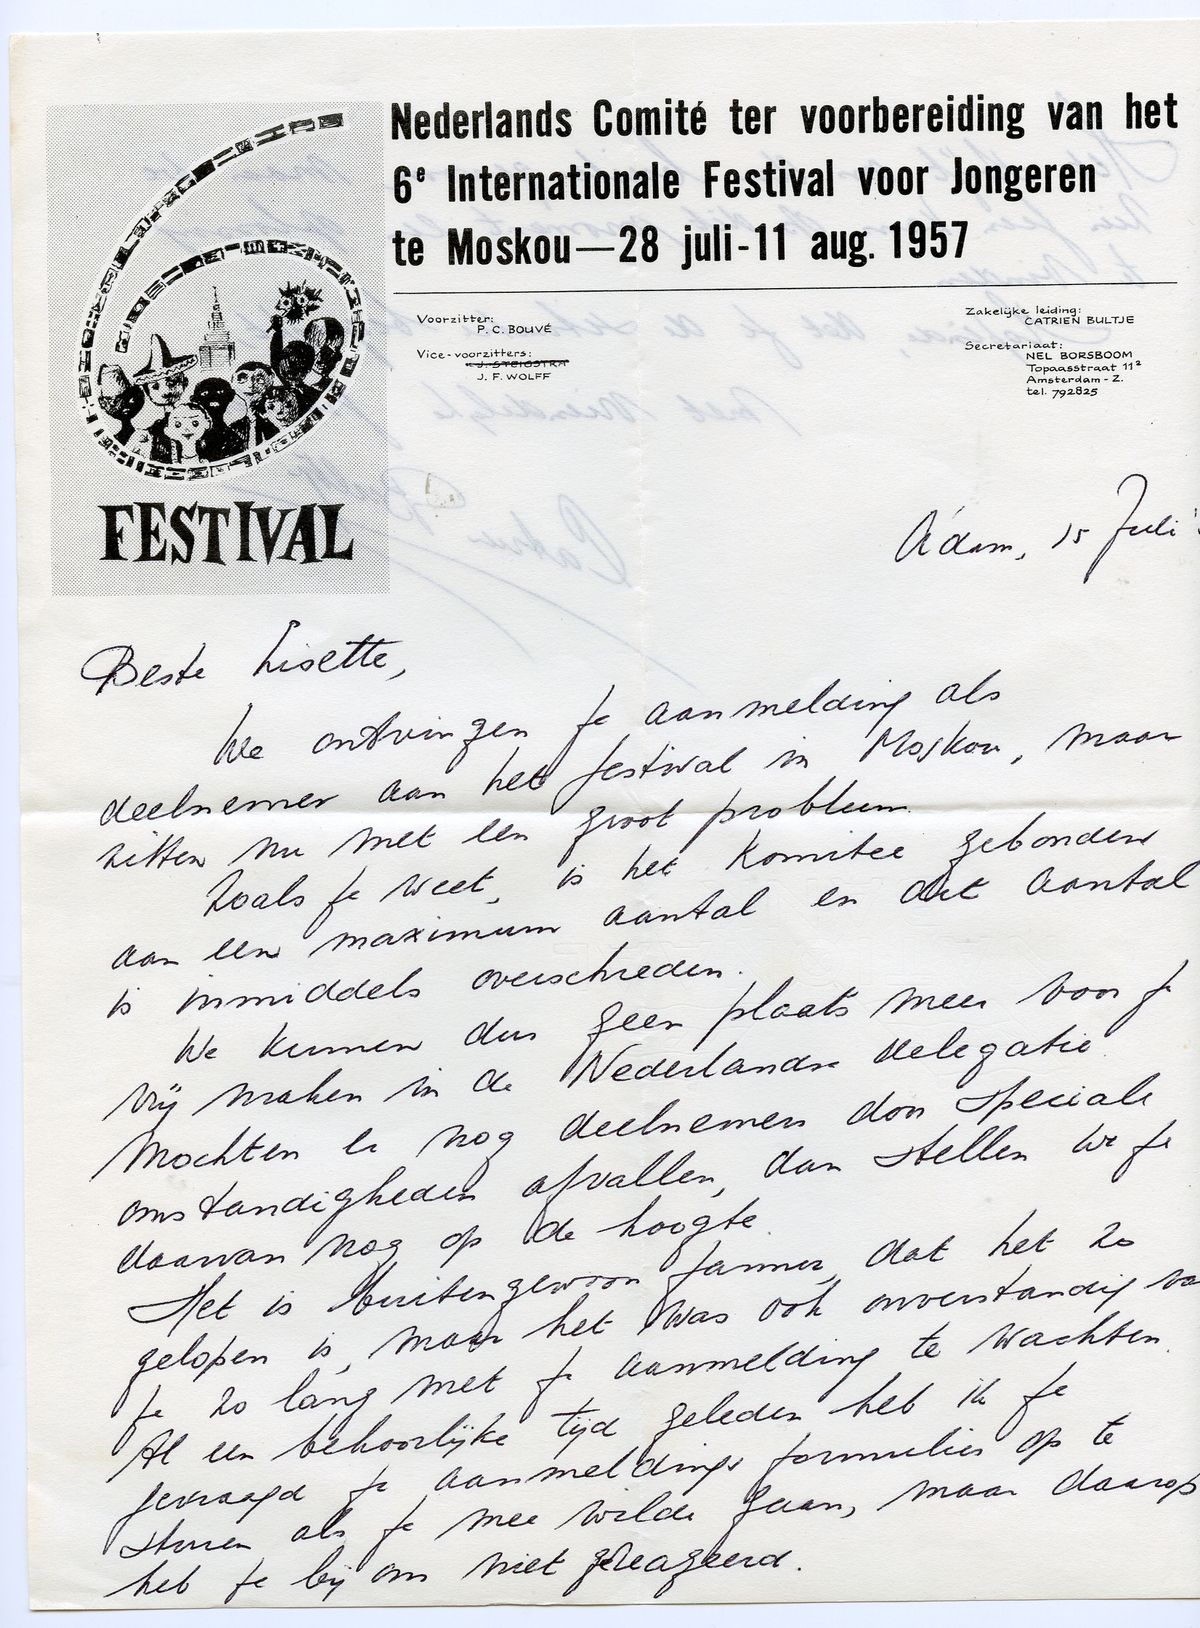 Nederlands Comité ter voorbereiding van het
6e Internationale Festival voor Jongeren
te Moskou—28 juli-11 aug. 1957
Voorzitter:
P. C. BOUVÉ
Vice-voorzitters:
J. STEIGSTRA
J. F. WOLFF
Zakelijke leiding:
CATRIEN BULTJE
Secretariaat:
NEL BORSBOOM
Topaasstraat 11²
Amsterdam-Z.
tel. 792825
FESTIVAL
A'dam, 15 Juli '
Beste Lisette,
We ontvingen je aanmelding als
deelnemer aan het festival in Moskou, maar
zitten nu met een groot probleem.
Zoals je weet, is het komitee gebonden
aan een maximum aantal en dit aantal
is inmiddels overschreden.
We kunnen dus geen plaats meer voor je
vrij maken in de Nederlandse delegatie.
Mochten er nog deelnemers door speciale
omstandigheden afvallen, dan stellen we je
daarvan nog op de hoogte.
Het is buitengewoon jammer, dat het zo
gelopen is, maar het was ook onverstandig va
je zo lang met je aanmelding te wachten.
Al een behoorlijke tijd geleden heb ik je
gevraagd je aanmeldings formulier op te
sturen als je mee wilde gaan, maar daarop
heb je bij ons niet gereageerd.